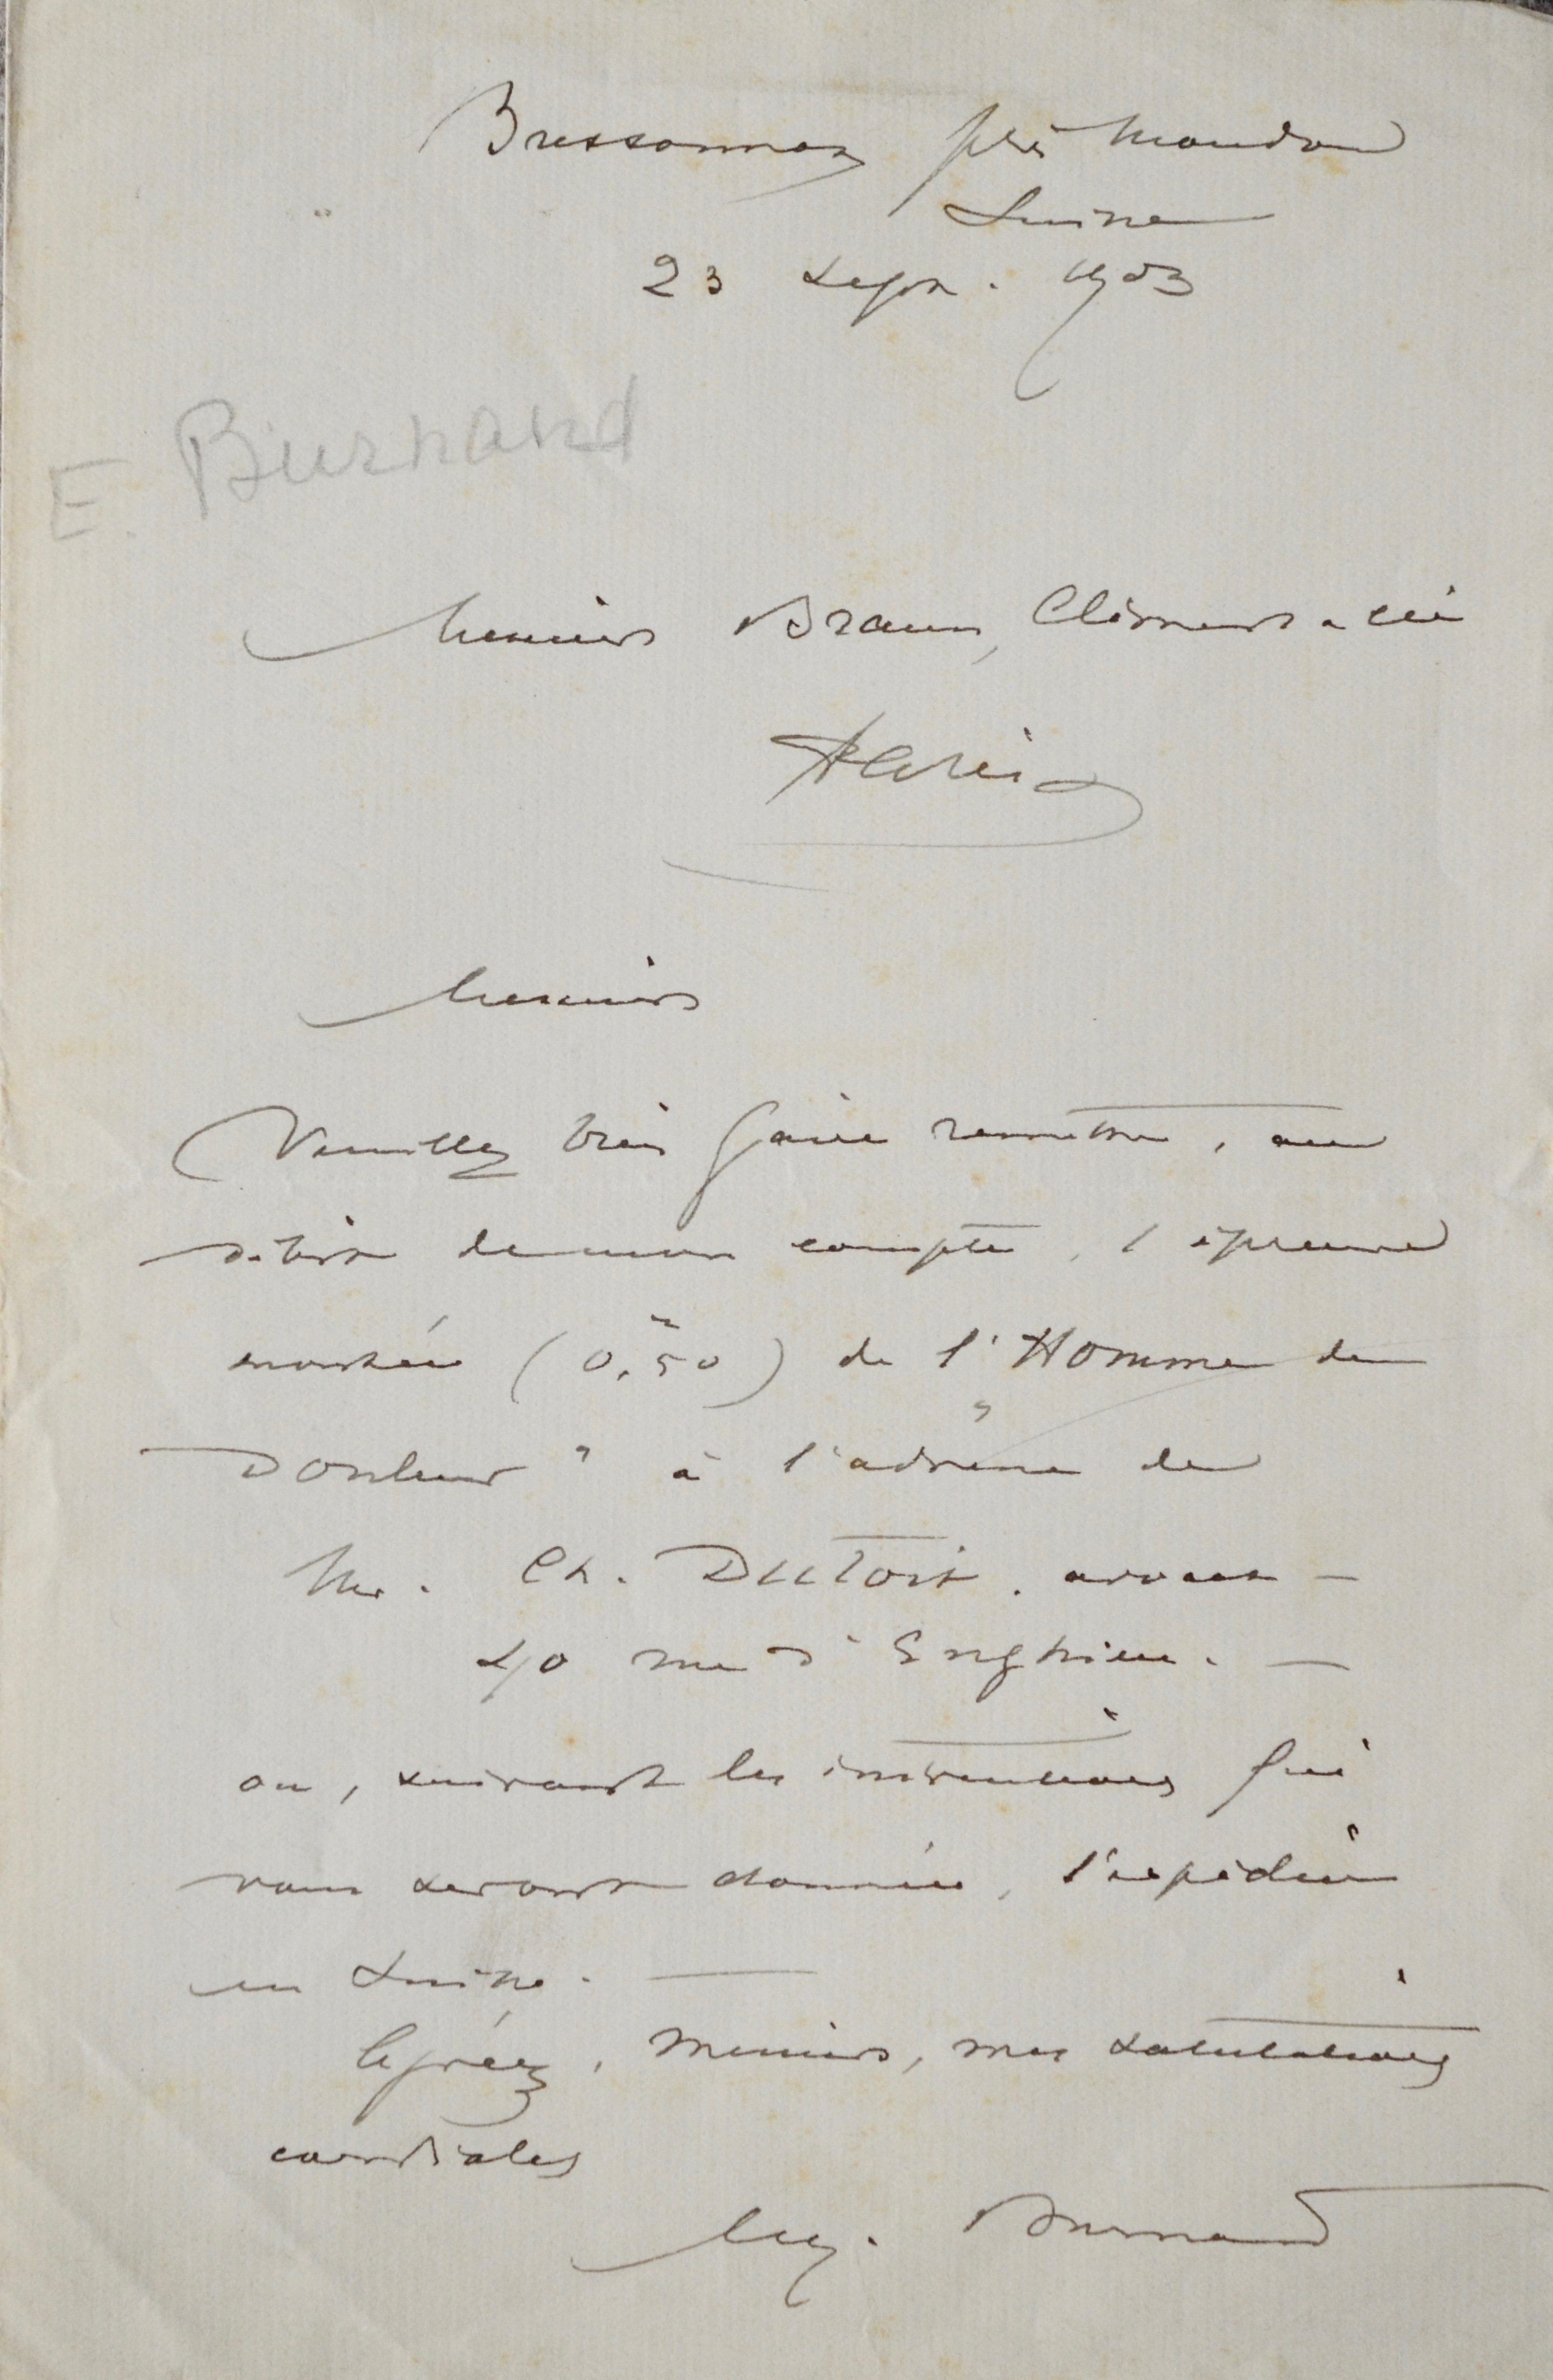 Bressonnaz près Moudon
Suisse
23 Sept. 1903
E. Burnand
Messieurs Braun, Clément & Cie
Paris
Messieurs
Veuillez bien faire remettre, au
débit de mon compte, l'épreuve
montée (0,50) de l'"Homme de
Douleur" à l'adresse de
Mr. Ch. DuToit. avocat —
40 rue d'Enghien. —
ou, suivant les instructions qui
vous seront données, l'expédier
en Suisse. —
Agréez, Messieurs, mes salutations
cordiales
Eug. Burnand